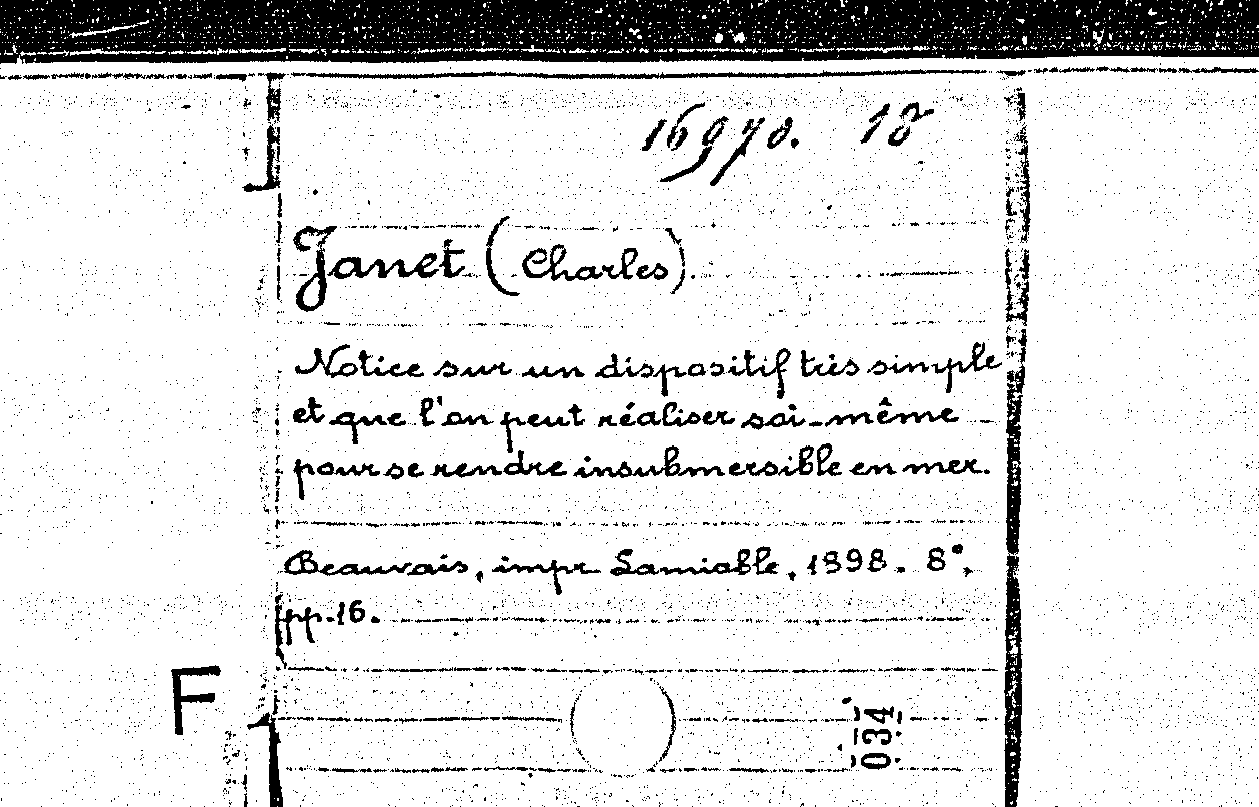 16970. 18
Janet (Charles).
Notice sur un dispositif très simple
et que l'on peut réaliser soi-même
pour se rendre insubmersible en mer.
Beauvais, impr Lamiable, 1898. 8°,
pp. 16.
F
034